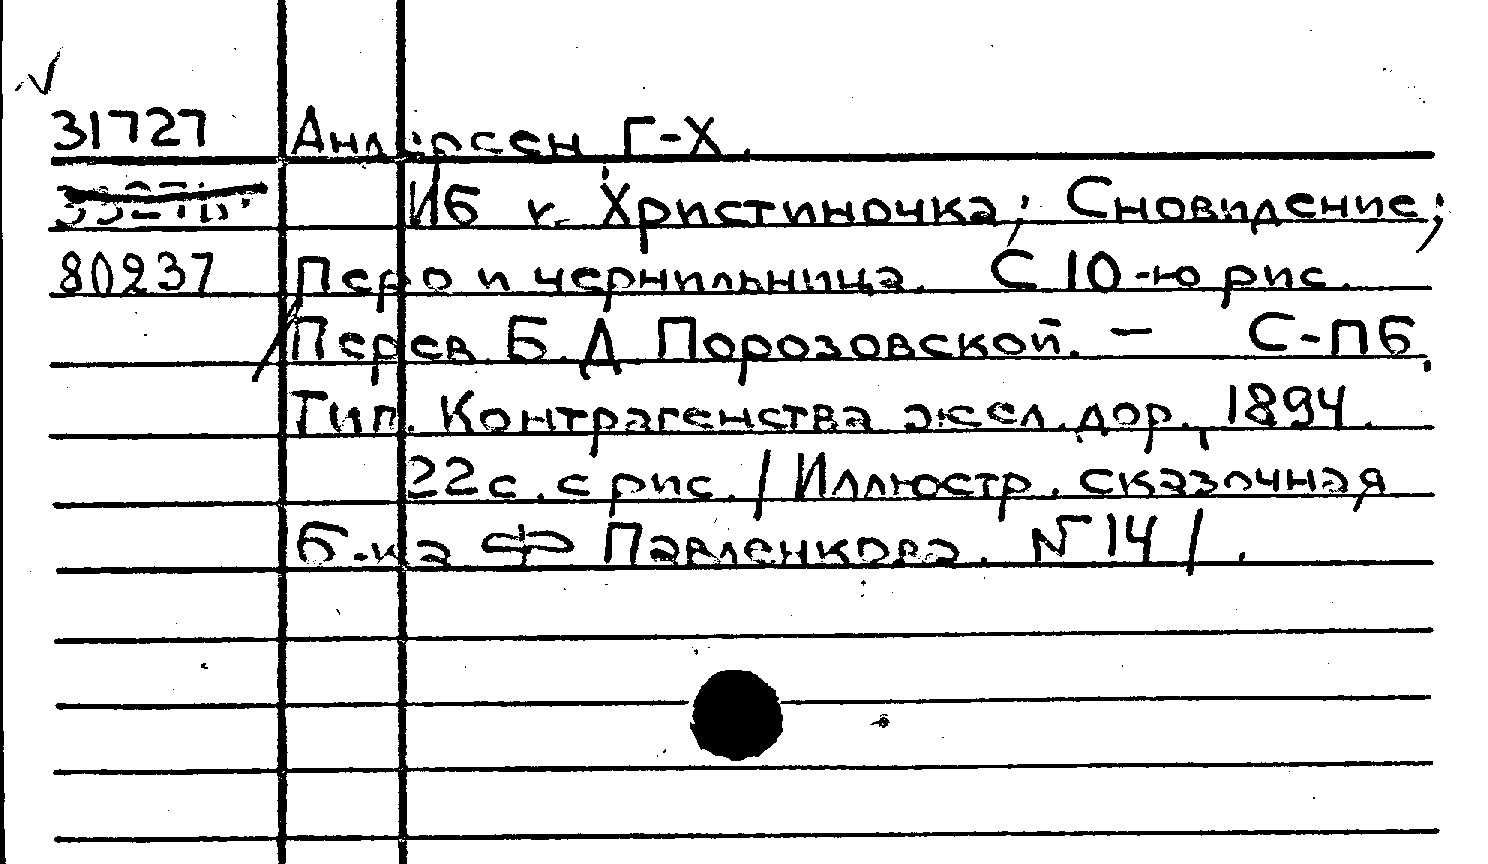 31727 Андерсен Г-Х.
Иб и Христиночка; Сновидение;
80237 Перо и чернильница. С 10-ю рис.
Перев. Б. Д. Порозовской. — С-ПБ,
Тип. Контрагенства жел. дор., 1894.
22 с. с рис. / Иллюстр. сказочная
б-ка Ф Павленкова. N 14 / .